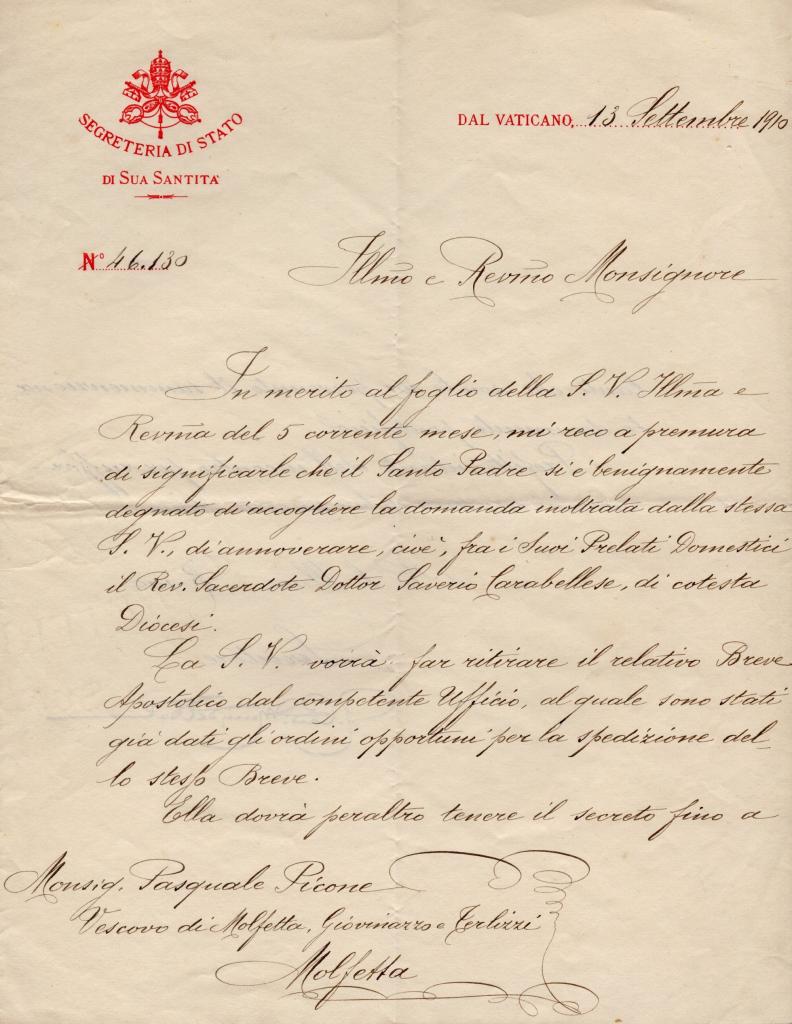 SEGRETERIA DI STATO
DI SUA SANTITA'
DAL VATICANO, 13 Settembre 1910
N° 46.130
Illmo e Revmo Monsignore
In merito al foglio della S. V. Illma e
Revma del 5 corrente mese, mi reco a premura
di significarle che il Santo Padre si è benignamente
degnato di accogliere la domanda inoltrata dalla stessa
S. V., di annoverare, cioè, fra i Suoi Prelati Domestici
il Rev. Sacerdote Dottor Saverio Carabellese, di cotesta
Diocesi.
La S. V. vorrà far ritirare il relativo Breve
Apostolico dal competente Ufficio, al quale sono stati
già dati gli ordini opportuni per la spedizione del-
lo stesso Breve.
Ella dovrà peraltro tenere il secreto fino a
Monsig. Pasquale Picone
Vescovo di Molfetta, Giovinazzo e Terlizzi
Molfetta